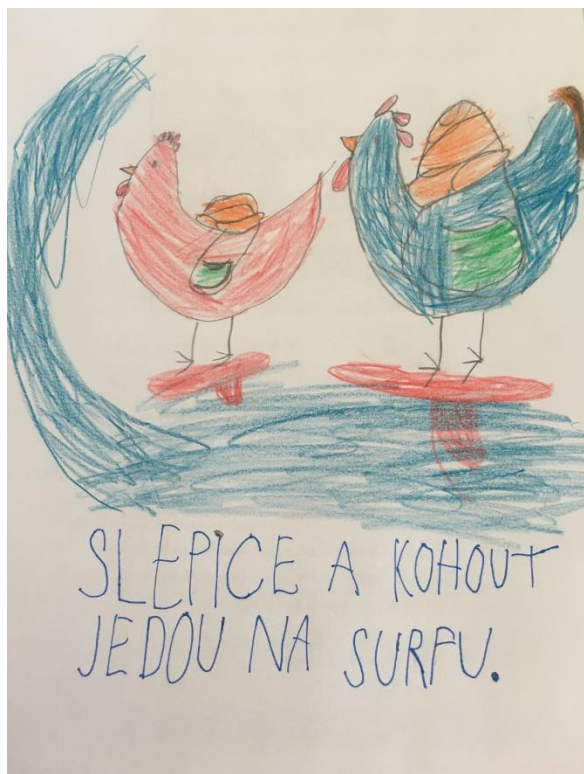 SLEPICE A KOHOUT
JEDOU NA SURFU.